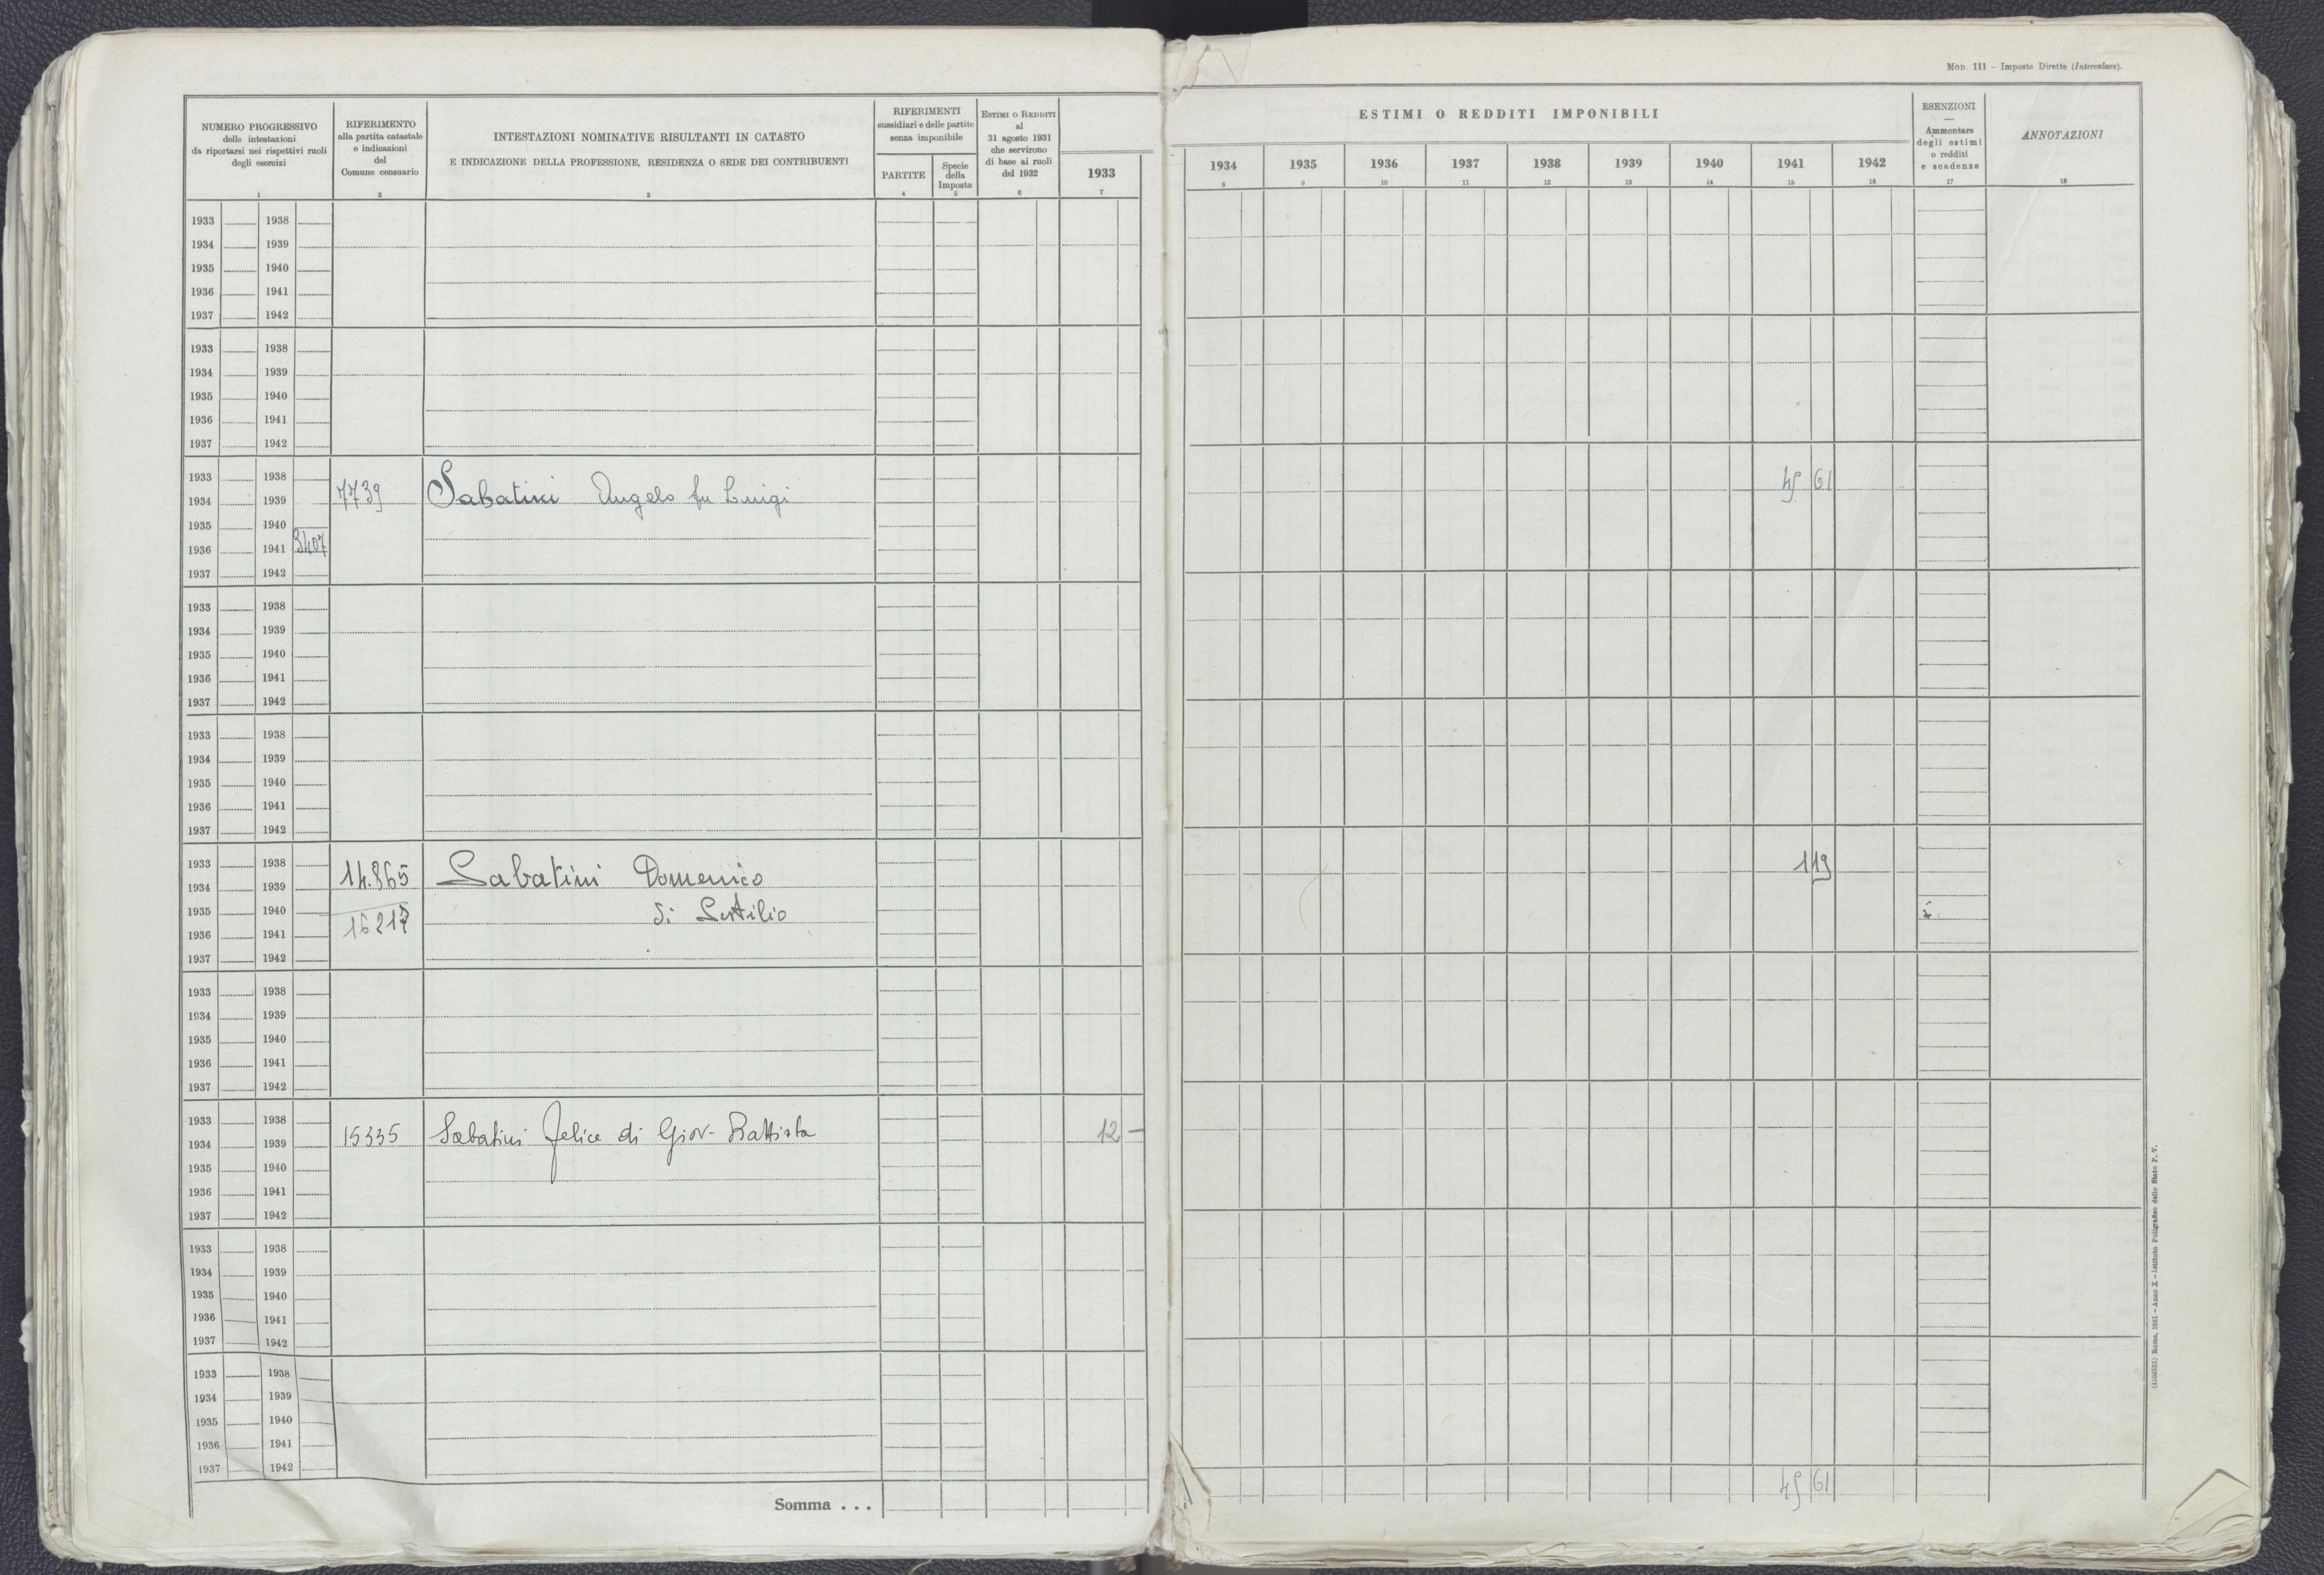 Mod. 111 – Imposte Dirette (Intercalare).
NUMERO PROGRESSIVO
delle intestazioni
da riportarsi nei rispettivi ruoli
degli esercizi
1
RIFERIMENTO
alla partita catastale
e indicazioni
del
Comune censuario
2
INTESTAZIONI NOMINATIVE RISULTANTI IN CATASTO
E INDICAZIONE DELLA PROFESSIONE, RESIDENZA O SEDE DEI CONTRIBUENTI
3
RIFERIMENTI
sussidiari e delle partite
senza imponibile
PARTITE
4
Specie
della
Imposta
5
ESTIMI O REDDITI
al
31 agosto 1931
che servirono
di base ai ruoli
del 1932
6
ESTIMI O REDDITI IMPONIBILI
1933
7
1934
8
1935
9
1936
10
1937
11
1938
12
1939
13
1940
14
1941
15
1942
16
ESENZIONI
—
Ammontare
degli estimi
o redditi
e scadenze
17
ANNOTAZIONI
18
1933 1938
1934 1939
1935 1940
1936 1941
1937 1942
1933 1938
1934 1939
1935 1940
1936 1941
1937 1942
1933 1938
1934 1939 7739 Sabatini Angelo fu Luigi 45 61
1935 1940
1936 1941 3407
1937 1942
1933 1938
1934 1939
1935 1940
1936 1941
1937 1942
1933 1938
1934 1939
1935 1940
1936 1941
1937 1942
1933 1938
1934 1939 14.865 Sabatini Domenico 119
1935 1940 di Sestilio
1936 1941
1937 1942
1933 1938
1934 1939
1935 1940
1936 1941
1937 1942
1933 1938
1934 1939 15335 Sabatini Felice di Giov. Battista 12 –
1935 1940
1936 1941
1937 1942
1933 1938
1934 1939
1935 1940
1936 1941
1937 1942
1933 1938
1934 1939
1935 1940
1936 1941
1937 1942
Somma . . . 45 61
(405551) Roma, 1931 – Anno X – Istituto Poligrafico dello Stato P. V.